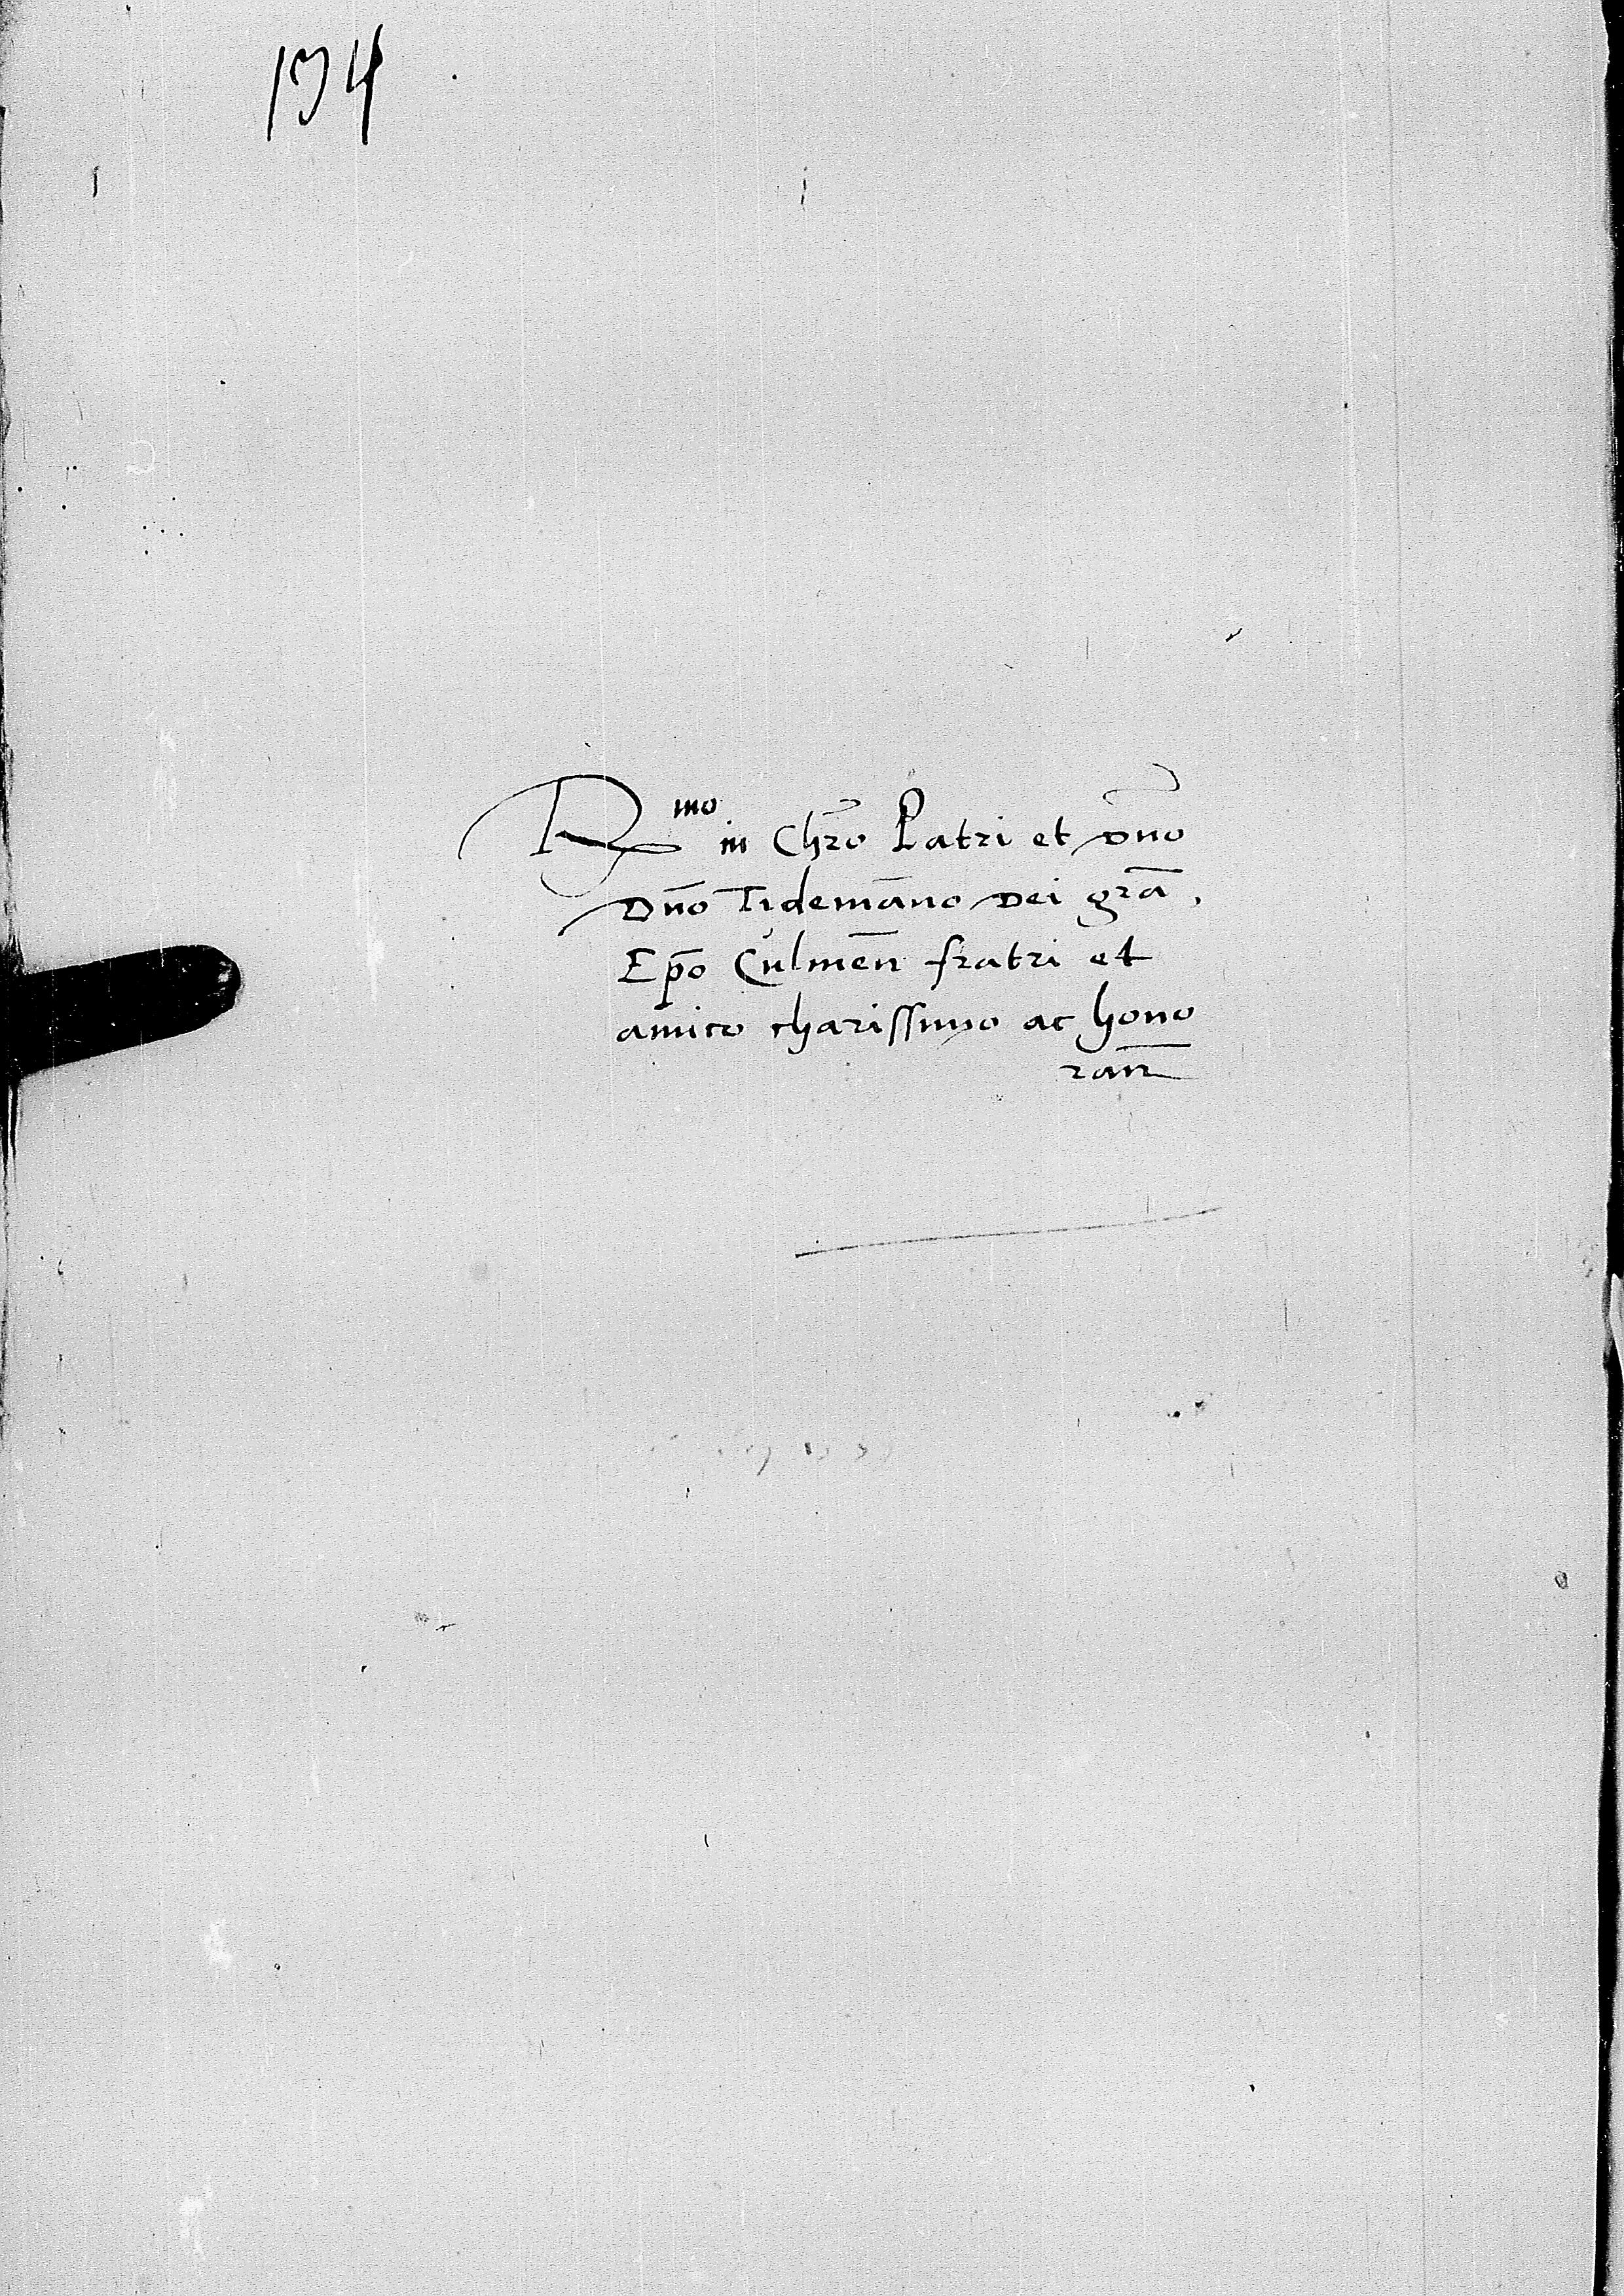 134
R^mo in Chr̄o Patri et Dn̄o
Dn̄o Tidemān̄o Dei grā,
Ep̄o Culmen̄ fratri et
amico charissimo ac hono
ran̄